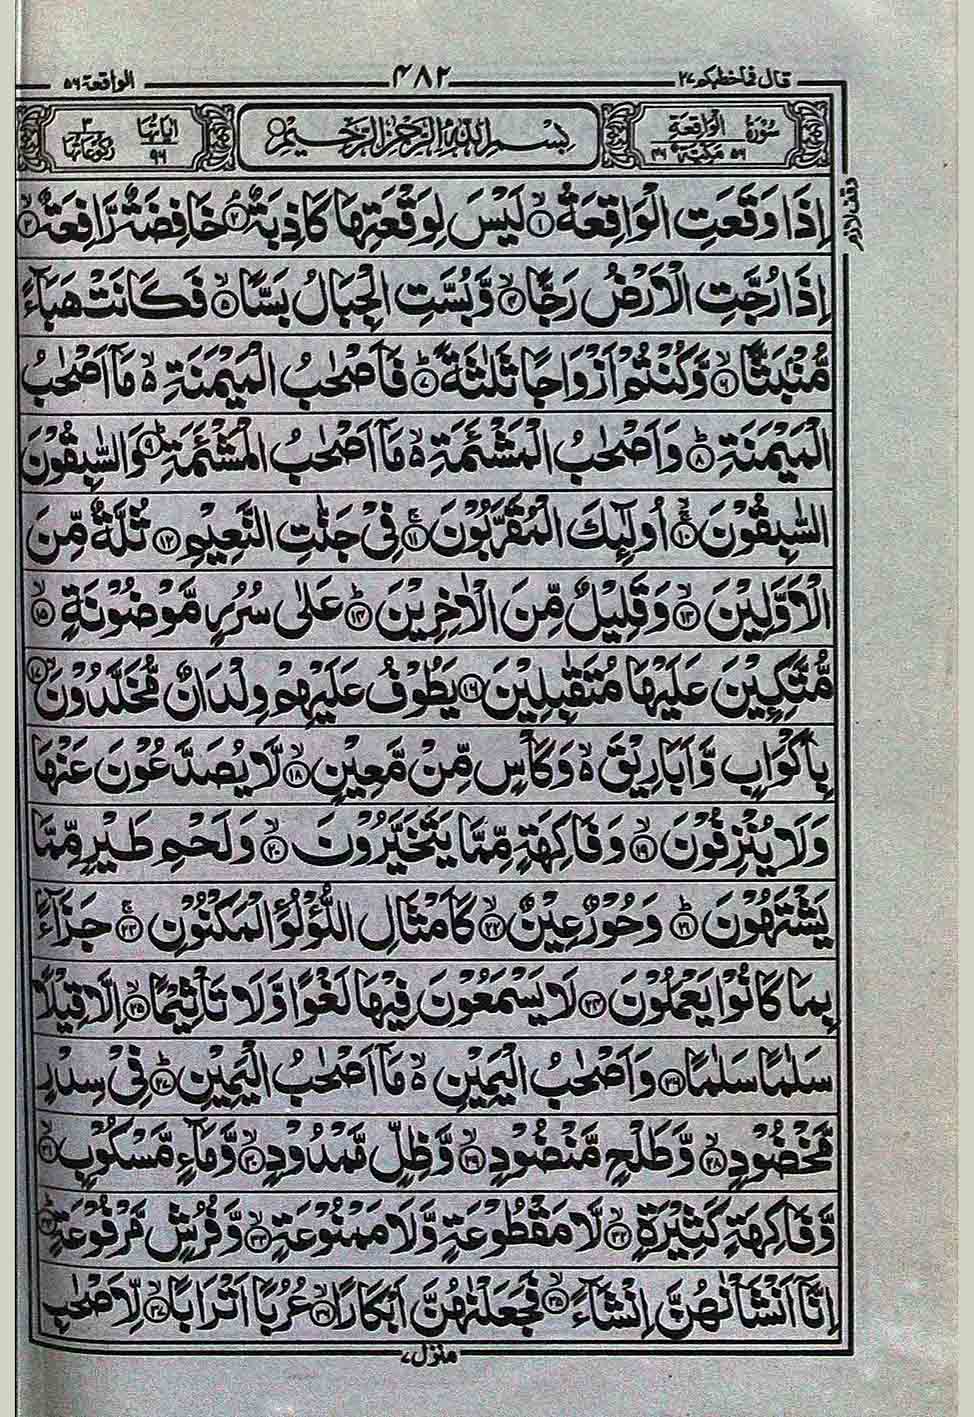 قال فما خطبكم ٢٧ ٤٨٢ الواقعة ٥٦
سُوۡرَةُ الۡوَاقِعَةِ ٥٦ مَكِّيَّةٌ ٤٦ بِسۡمِ اللّٰهِ الرَّحۡمٰنِ الرَّحِيۡمِ اٰيَاتُهَا ٩٦ رُكُوۡعَاتُهَا ٣
وقف لازم
اِذَا وَقَعَتِ الۡوَاقِعَةُ ۙ‏﴿۱﴾ لَيۡسَ لِوَقۡعَتِهَا كَاذِبَةٌ ۘ‏﴿۲﴾ خَافِضَةٌ رَّافِعَةٌ ۙ‏﴿۳﴾
اِذَا رُجَّتِ الۡاَرۡضُ رَجًّا ۙ‏﴿۴﴾ وَّبُسَّتِ الۡجِبَالُ بَسًّا ۙ‏﴿۵﴾ فَكَانَتۡ هَبَآءً
مُّنۡۢبَثًّا ۙ‏﴿۶﴾ وَّكُنۡتُمۡ اَزۡوَاجًا ثَلٰثَةً ؕ‏﴿۷﴾ فَاَصۡحٰبُ الۡمَيۡمَنَةِ ۙ مَاۤ اَصۡحٰبُ
الۡمَيۡمَنَةِ ؕ‏﴿۸﴾ وَاَصۡحٰبُ الۡمَشۡـَٔمَةِ ۙ مَاۤ اَصۡحٰبُ الۡمَشۡـَٔمَةِ ؕ‏﴿۹﴾ وَالسّٰبِقُوۡنَ
السّٰبِقُوۡنَ ۚۙ‏﴿۱۰﴾ اُولٰٓٮِٕكَ الۡمُقَرَّبُوۡنَ‌ۚ‏﴿۱۱﴾ فِىۡ جَنّٰتِ النَّعِيۡمِ‏﴿۱۲﴾ ثُلَّةٌ مِّنَ
الۡاَوَّلِيۡنَۙ‏﴿۱۳﴾ وَقَلِيۡلٌ مِّنَ الۡاٰخِرِيۡنَؕ‏﴿۱۴﴾ عَلٰى سُرُرٍ مَّوۡضُوۡنَةٍۙ‏﴿۱۵﴾
مُّتَّكِـِٕيۡنَ عَلَيۡهَا مُتَقٰبِلِيۡنَ‏﴿۱۶﴾ يَطُوۡفُ عَلَيۡهِمۡ وِلۡدَانٌ مُّخَلَّدُوۡنَۙ‏﴿۱۷﴾
بِاَكۡوَابٍ وَّاَبَارِيۡقَ ۙ وَكَاۡسٍ مِّنۡ مَّعِيۡنٍۙ‏﴿۱۸﴾ لَّا يُصَدَّعُوۡنَ عَنۡهَا
وَلَا يُنۡزِفُوۡنَۙ‏﴿۱۹﴾ وَفَاكِهَةٍ مِّمَّا يَتَخَيَّرُوۡنَۙ‏﴿۲۰﴾ وَلَحۡمِ طَيۡرٍ مِّمَّا
يَشۡتَهُوۡنَؕ‏﴿۲۱﴾ وَحُوۡرٌ عِيۡنٌۙ‏﴿۲۲﴾ كَاَمۡثَالِ اللُّـؤۡلُـوٴِالۡمَكۡنُوۡنِ‌ۚ‏﴿۲۳﴾ جَزَآءًۢ
بِمَا كَانُوۡا يَعۡمَلُوۡنَ‏﴿۲۴﴾ لَا يَسۡمَعُوۡنَ فِيۡهَا لَغۡوًا وَّلَا تَاۡثِيۡمًاۙ‏﴿۲۵﴾ اِلَّا قِيۡلًا
سَلٰمًا سَلٰمًا‏﴿۲۶﴾ وَاَصۡحٰبُ الۡيَمِيۡنِ ۙ مَاۤ اَصۡحٰبُ الۡيَمِيۡنِؕ‏﴿۲۷﴾ فِىۡ سِدۡرٍ
مَّخۡضُوۡدٍۙ‏﴿۲۸﴾ وَّطَلۡحٍ مَّنۡضُوۡدٍۙ‏﴿۲۹﴾ وَّظِلٍّ مَّمۡدُوۡدٍۙ‏﴿۳۰﴾ وَّمَآءٍ مَّسۡكُوۡبٍۙ‏﴿۳۱﴾
وَّفَاكِهَةٍ كَثِيۡرَةٍۙ‏﴿۳۲﴾ لَّا مَقۡطُوۡعَةٍ وَّلَا مَمۡنُوۡعَةٍۙ‏﴿۳۳﴾ وَّفُرُشٍ مَّرۡفُوۡعَةٍؕ‏﴿۳۴﴾
اِنَّاۤ اَنۡشَاۡنٰهُنَّ اِنۡشَآءًۙ‏﴿۳۵﴾ فَجَعَلۡنٰهُنَّ اَبۡكَارًاۙ‏﴿۳۶﴾ عُرُبًا اَتۡرَابًاۙ‏﴿۳۷﴾ لِّاَصۡحٰبِ
منزل ٧